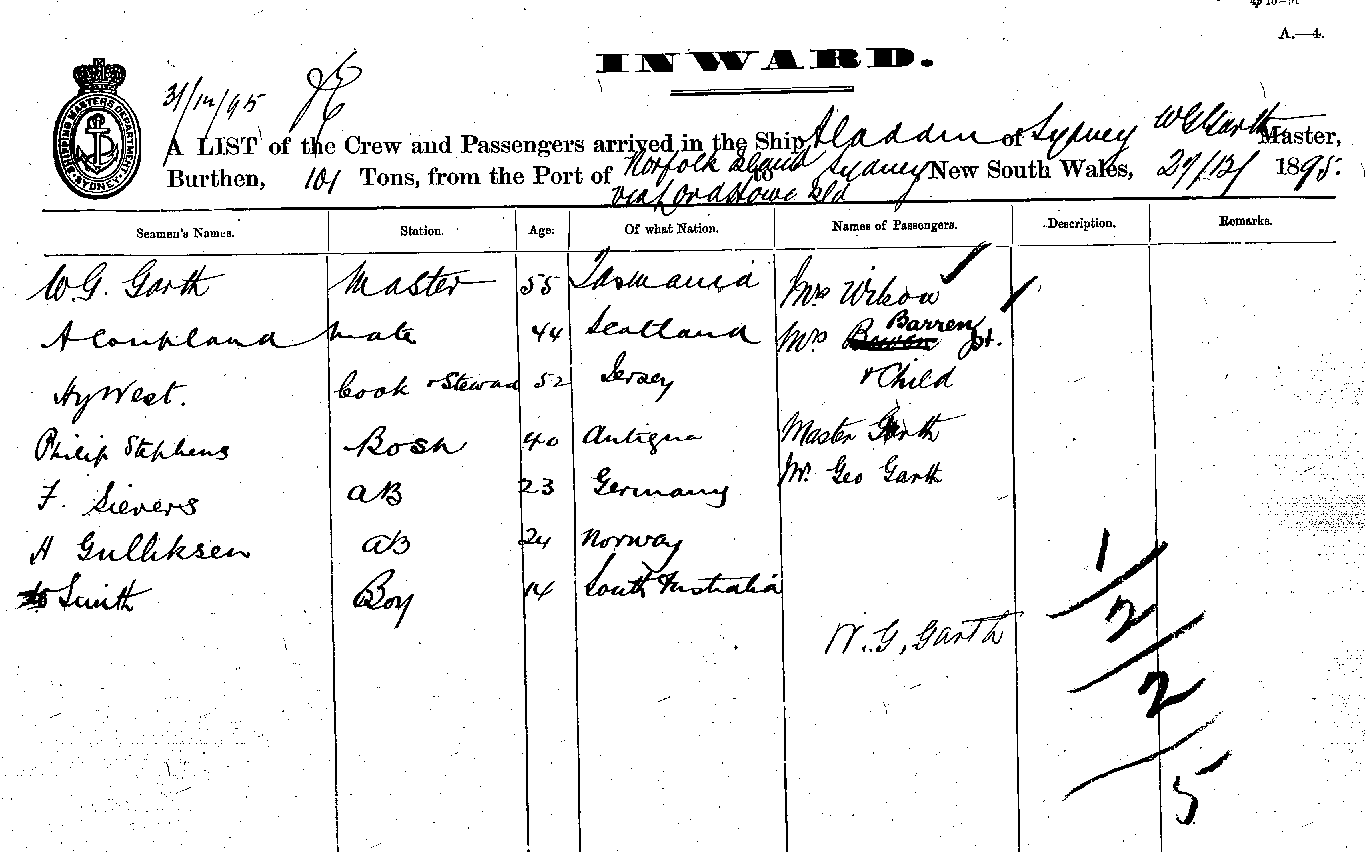 A.—4.
INWARD.
31/12/95
SHIPPING MASTERS DEPARTMENT SYDNEY
A LIST of the Crew and Passengers arrived in the Ship Aladdin of Sydney W G Garth Master,
Burthen, 101 Tons, from the Port of Norfolk Island to Sydney New South Wales, 27/12/1895.
via Lord Howe Isld
Seamen's Names. Station. Age: Of what Nation. Names of Passengers. Description. Remarks.
W. G. Garth Master 55 Tasmania Mrs Wilson
A Coupland Mate 44 Scotland Mrs Barren
Hy West. Cook & Steward 52 Jersey & Child
Philip Stephens Bosn 40 Antigua Master Garth
F. Sievers AB 23 Germany Mr. Geo Garth
H Gulliksen AB 24 Norway
Smith Boy 14 South Australia
W. G. Garth
1/
2/
2/
5